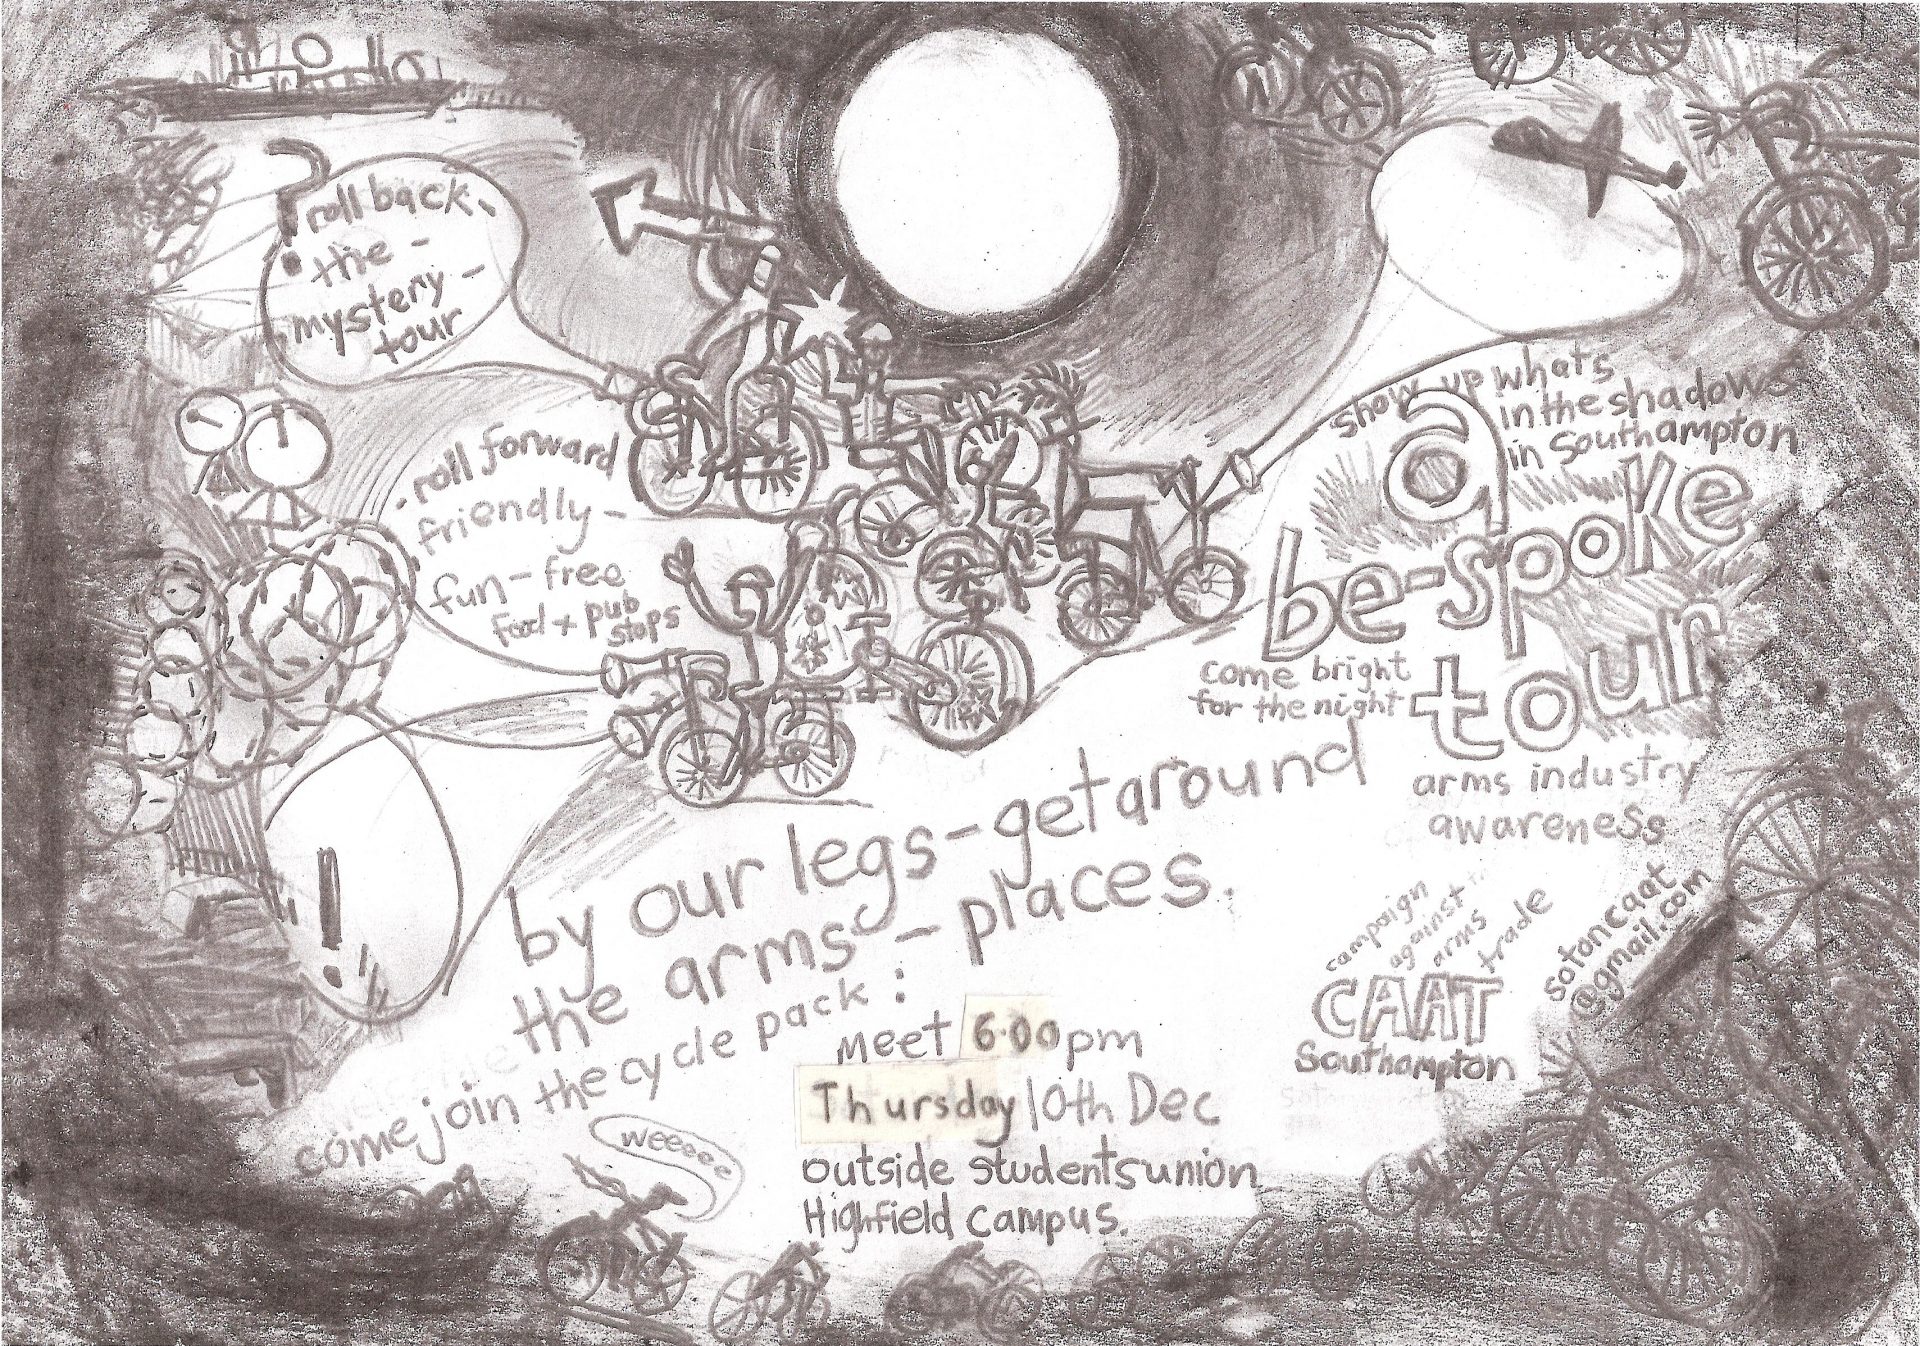 ?
roll back
the -
mystery -
tour
- roll forward
friendly -
fun - free
food + pub
stops
!
show up whats
in the shadows
in Southampton
a
be-spoke
tour
come bright
for the night
arms industry
awareness
by our legs - get around
the arms - places.
come join the cycle pack :
meet 6.00pm
Thursday 10th Dec
outside students union
Highfield campus.
weeeee
campaign
against
arms
trade
CAAT
Southampton
sotoncaat
@gmail.com